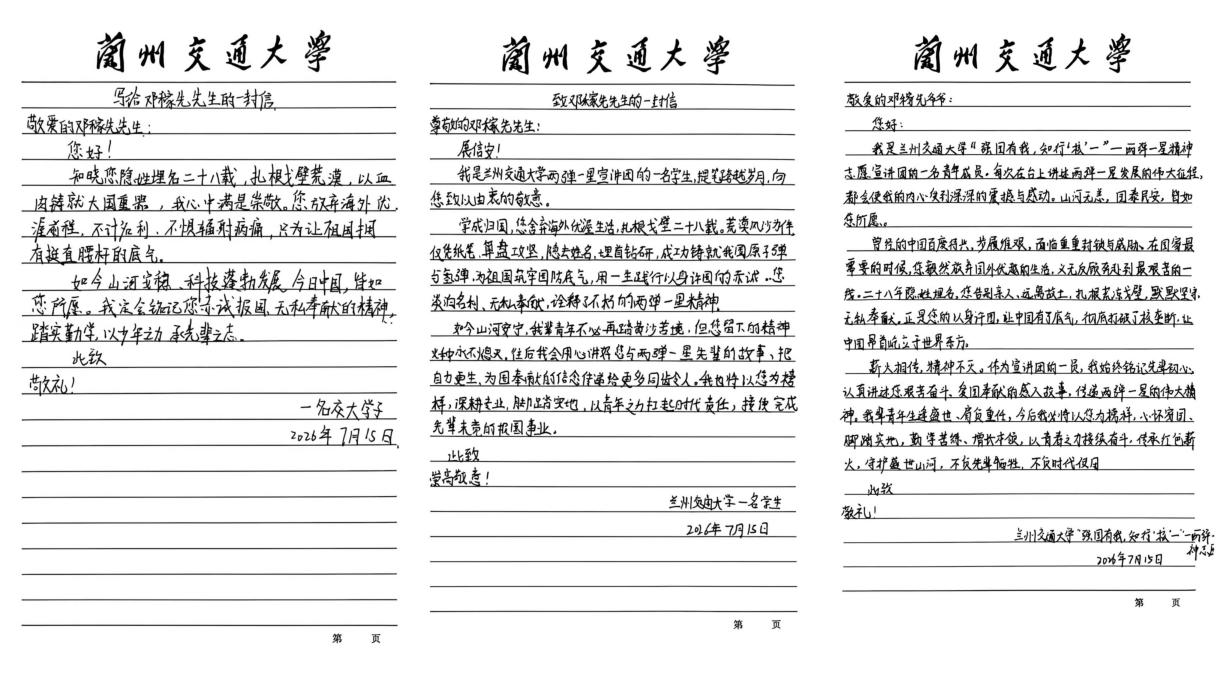 蘭州交通大學
写给邓稼先先生的一封信
敬爱的邓稼先先生：
您好！
知晓您隐姓埋名二十八载，扎根戈壁荒漠，以血
肉铸就大国重器，我心中满是崇敬。您放弃海外优
渥前程，不计名利、不惧辐射病痛，只为让祖国拥
有挺直腰杆的底气。
如今山河安稳、科技蓬勃发展，今日中国，皆如
您所愿。我定会铭记您赤诚报国、无私奉献的精神，
踏实勤学，以少年之力 承先辈之志。
此致
敬礼！
一名交大学子
2026年7月15日
第 页
蘭州交通大學
致邓稼先先生的一封信
尊敬的邓稼先先生：
展信安！
我是兰州交通大学两弹一星宣讲团的一名学生，提笔跨越岁月，向
您致以由衷的敬意。
学成归国，您舍弃海外优渥生活，扎根戈壁二十八载。荒漠风沙为伴
仅凭纸笔、算盘攻坚，隐去姓名，埋首钻研，成功铸就我国原子弹
与氢弹，为祖国筑牢国防底气，用一生践行以身许国的赤诚。您
淡泊名利、无私奉献，诠释了不朽的两弹一星精神。
如今山河安宁，我辈青年不必再踏黄沙苦境，但您留下的精神
火种永不熄灭，往后我会用心讲好您与两弹一星先辈的故事、把
自力更生、为国奉献的信念传递给更多同龄人。我也将以您为榜
样，深耕专业，脚踏实地，以青年之力扛起时代责任，接续完成
先辈未竟的报国事业。
此致
崇高敬意！
兰州交通大学一名学生
2026年7月15日
第 页
蘭州交通大學
敬爱的邓稼先爷爷：
您好：
我是兰州交通大学“强国有我，知行‘核’一”—两弹一星精神
志愿宣讲团的一名青年成员。每次在台上讲述两弹一星发展的伟大征程，
都会使我的内心受到深深的震撼与感动。山河无恙，国泰民安，皆如
您所愿。
曾经的中国百废待兴，步履维艰，面临重重封锁与威胁、在国家最
需要的时候，您毅然放弃国外优越的生活，义无反顾奔赴到最艰苦的一
线。二十八年隐姓埋名，您告别亲人、远离故土，扎根荒凉戈壁，默默坚守，
无私奉献，正是您的以身许国，让中国有了底气，彻底打破了核垄断，让
中国昂首屹立于世界东方。
薪火相传，精神不灭。作为宣讲团的一员，我始终铭记先辈初心、
认真讲述您艰苦奋斗、爱国奉献的感人故事，传递两弹一星的伟大精
神。我辈青年生逢盛世、肩负重任，今后我必将以您为榜样，心怀家国、
脚踏实地，勤学苦练、增长本领，以青春之力接续奋斗，传承红色薪
火，守护盛世山河，不负先辈牺牲，不负时代使用
此致
敬礼！
兰州交通大学“强国有我，知行‘核’一”—两弹一
神志
2026年7月15日
第 页